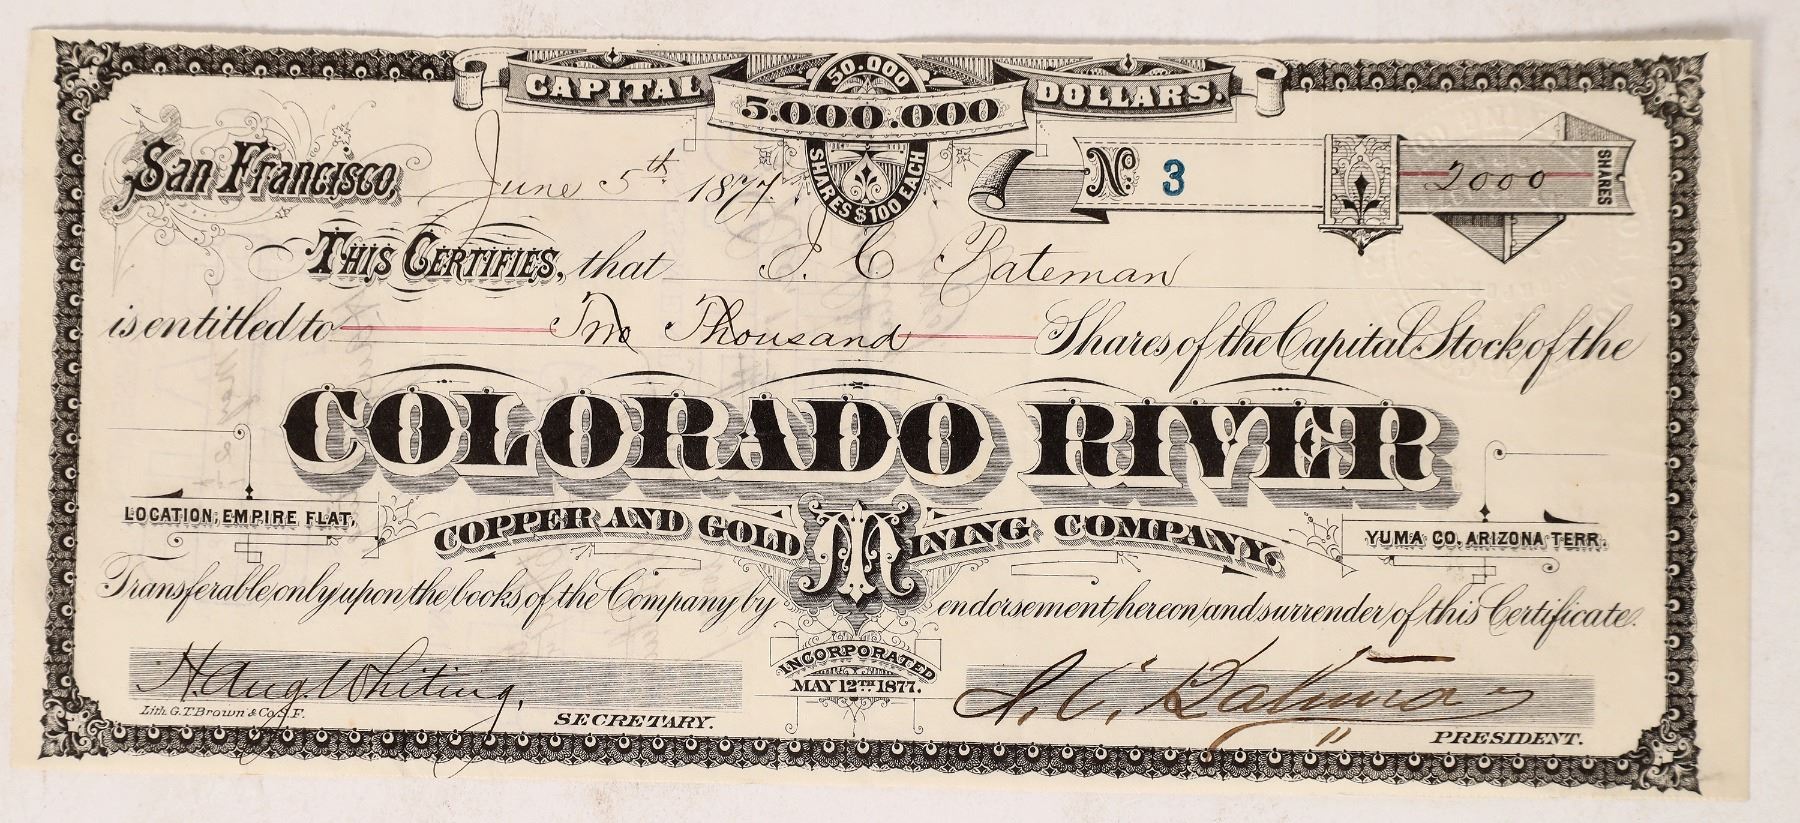 CAPITAL 5.000.000 DOLLARS.
50.000
SHARES $100 EACH
San Francisco, June 5th 1877.
No. 3
2000 SHARES
THIS CERTIFIES, that I. C. Bateman
is entitled to Two Thousand Shares of the Capital Stock of the
COLORADO RIVER
LOCATION; EMPIRE FLAT,
COPPER AND GOLD MINING COMPANY.
YUMA CO. ARIZONA TERR.
Transferable only upon the books of the Company by endorsement hereon and surrender of this Certificate.
INCORPORATED
MAY 12TH 1877.
H Aug. Whiting,
SECRETARY.
I. C. Bateman
PRESIDENT.
Lith. G.T. Brown & Co. S.F.